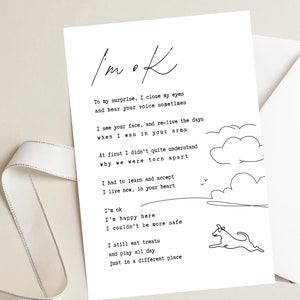 I'm ok
To my surprise, I close my eyes
and hear your voice sometimes
I see your face, and re-live the days
when I was in your arms
At first I didn't quite understand
why we were torn apart
I had to learn and accept
I live now, in your heart
I'm ok
I'm happy here
I couldn't be more safe
I still eat treats
and play all day
just in a different place